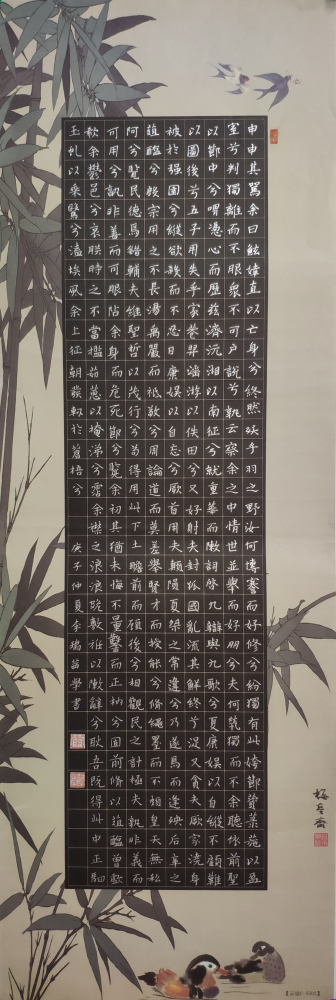 申申其詈余曰鮌婞直以亡身兮終然殀乎羽之野汝何博謇而好修兮紛獨有此姱節薋菉葹以盈
室兮判獨離而不服眾不可戶說兮孰云察余之中情世並舉而好朋兮夫何煢獨而不余聽依前聖
以節中兮喟憑心而歷茲濟沅湘以南征兮就重華而敶詞啟九辯與九歌兮夏康娛以自縱不顧難
以圖後兮五子用失乎家巷羿淫游以佚田兮又好射夫封狐固亂流其鮮終兮浞又貪夫厥家澆身
被於強圉兮縱欲殺而不忍日康娛以自忘兮厥首用夫顛隕夏桀之常違兮乃遂焉而逢殃后辛之
菹醢兮殷宗用之不長湯禹嚴而祗敬兮周論道而莫差舉賢才而授能兮循繩墨而不頗皇天無私
阿兮覽民德焉錯輔夫維聖哲以茂行兮苟得用此下土瞻前而顧後兮相觀民之計極夫孰非義而
可用兮孰非善而可服阽余身而危死節兮覽余初其猶未悔不量鑿而正枘兮固前脩以菹醢曾歔
欷余鬱邑兮哀朕時之不當攬茹蕙以掩涕兮霑余襟之浪浪跪敷衽以敶辭兮耿吾既得此中正駟
玉虬以乘鷖兮溘埃風余上征朝發軔於蒼梧兮 庚子仲夏李瑞苗學書